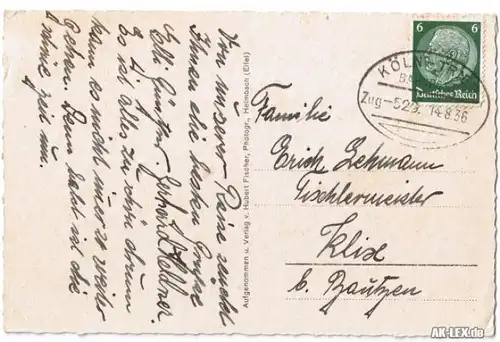 Von unserer Reise sendet
Ihnen die besten Grüße
Elli Günther Gerhard
es ist alles zu schön drum
kann es nicht immer so weiter
gehen. Dann
Aufgenommen u. Verlag v. Hubert Fischer, Photogr., Heimbach (Eifel)
6 6
Deutsches Reich
KÖLN
Zug 14.8.36
Familie
Erich Lehmann
Tischlermeister
Klix
b. Bautzen
AK-LEX.de